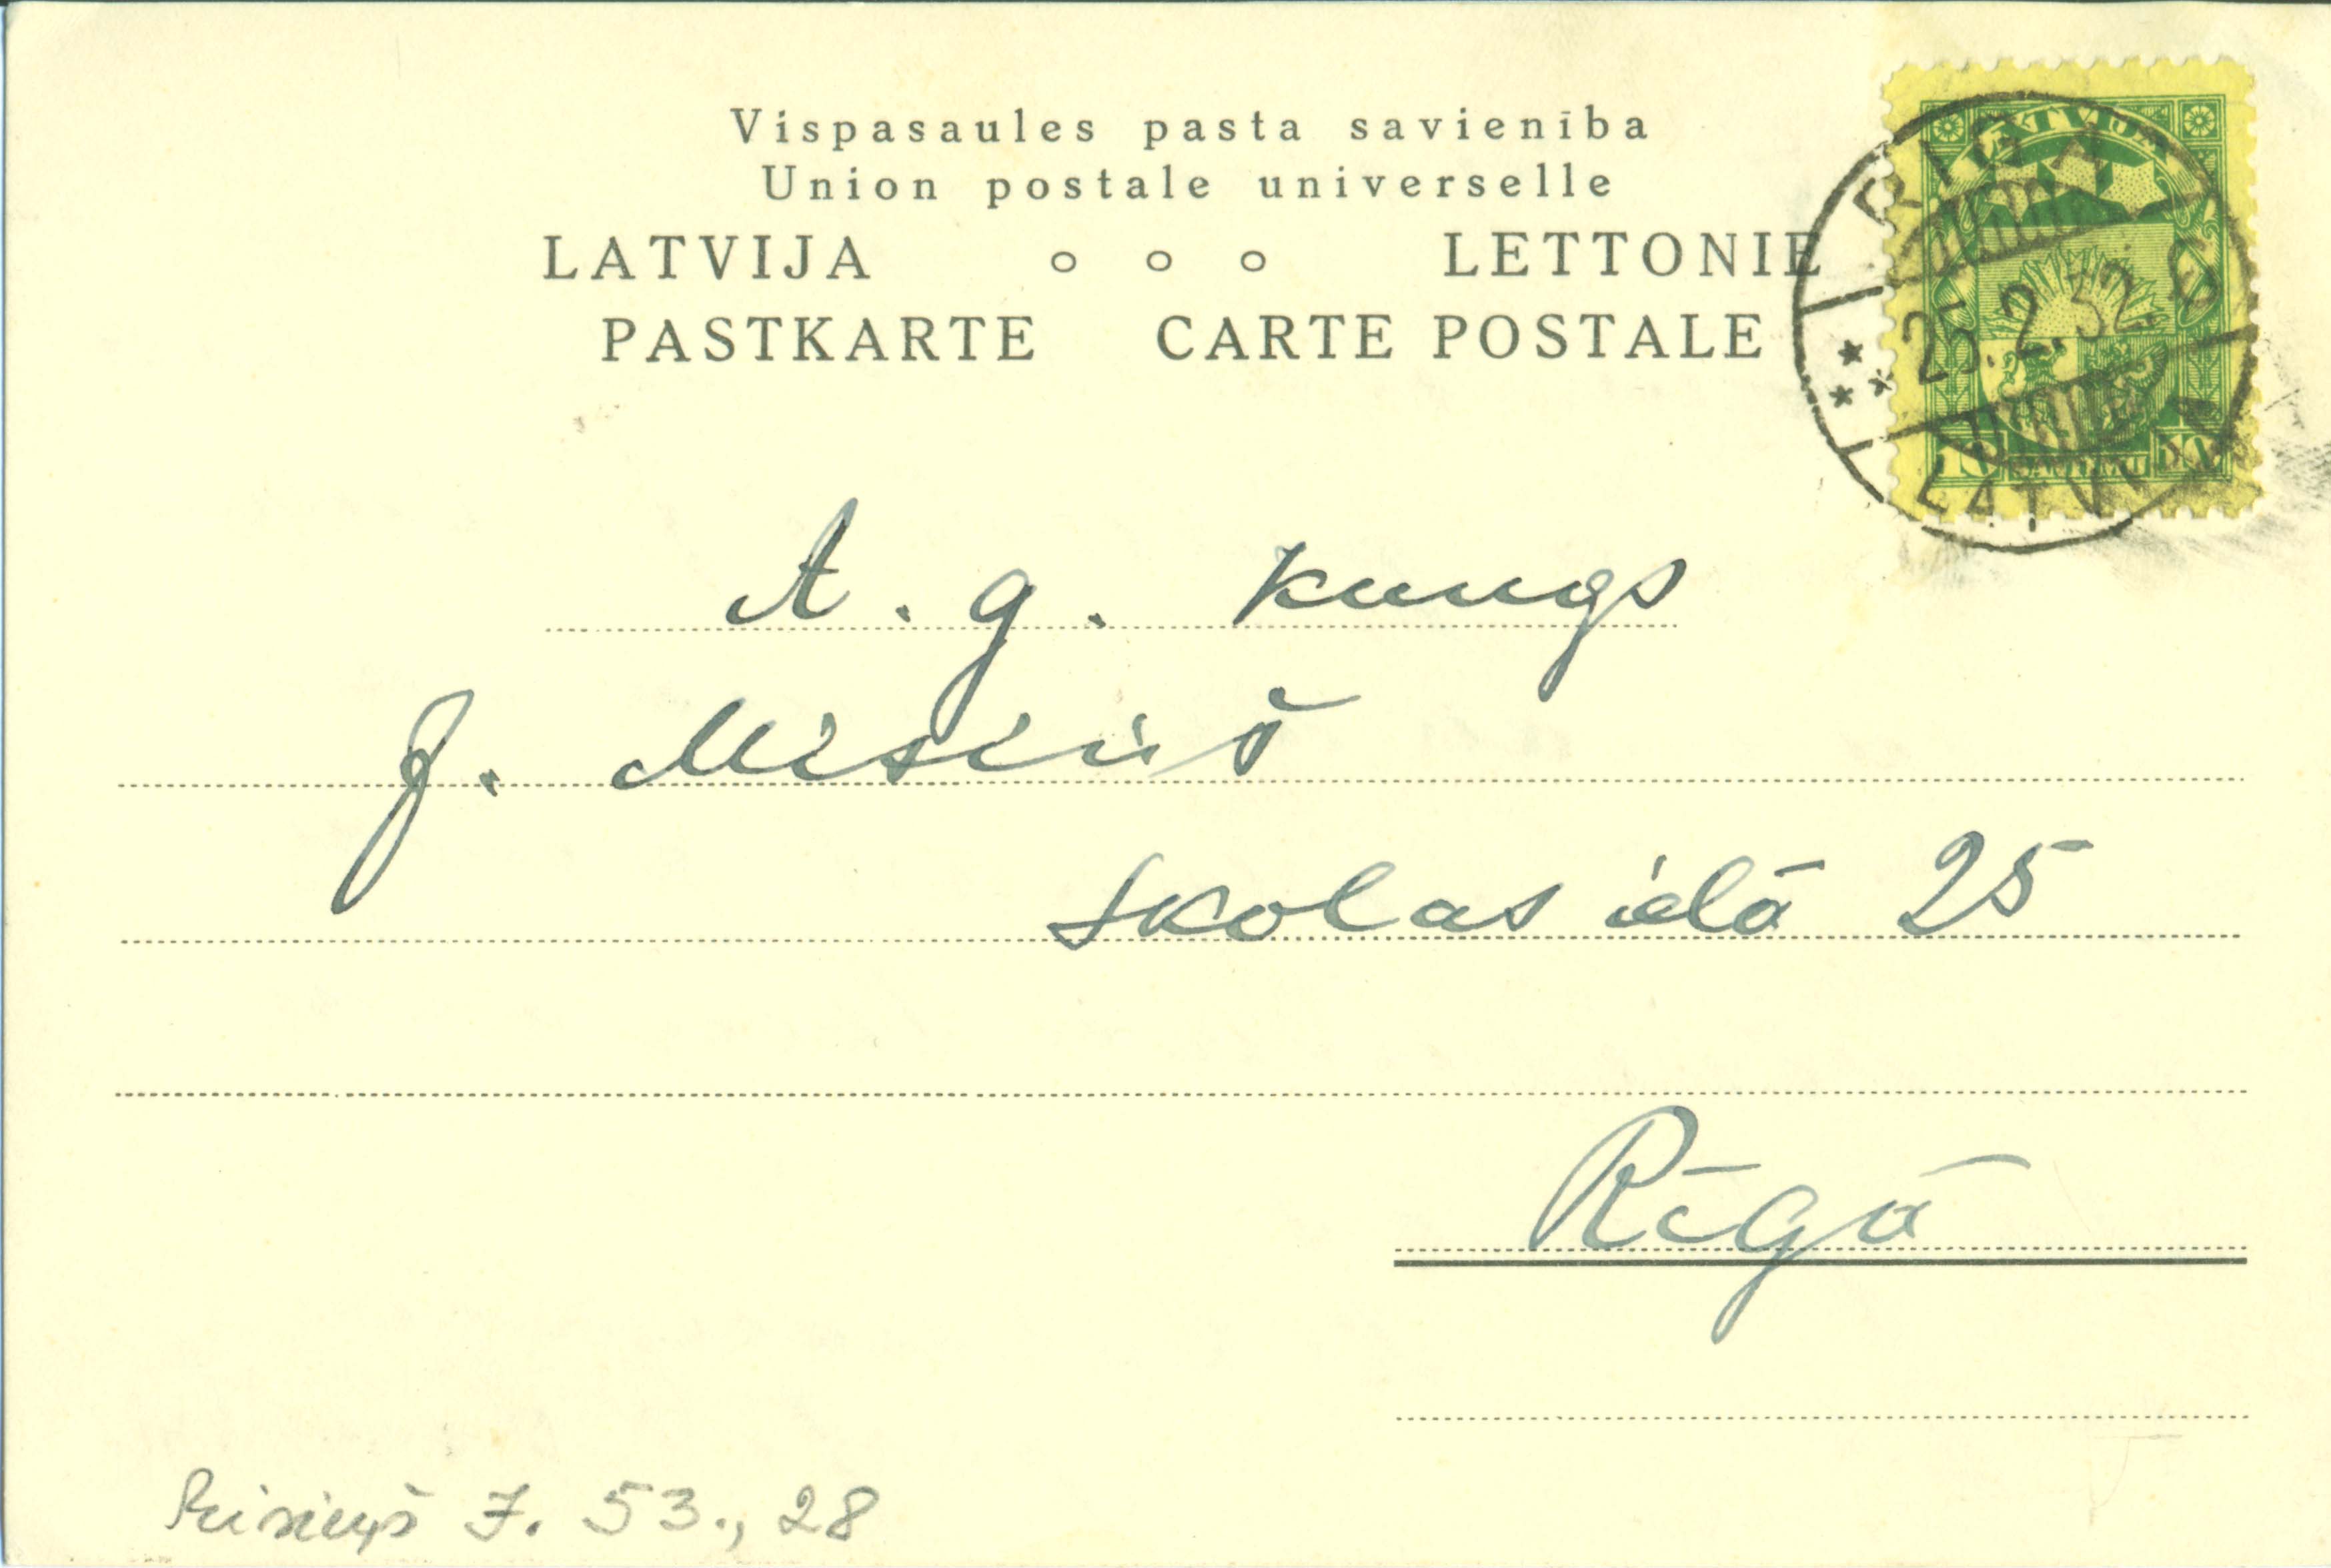 Vispasaules pasta savienība
Union postale universelle
LATVIJA ○ ○ ○ LETTONIE
PASTKARTE CARTE POSTALE
LATVIJA
10 SANTIMU 10
RIGA
23.2.32
LATVIJA
A. g. kungs
J. Misiņš
Skolas ielā 25
Rīgā
Misiņš J. 53., 28